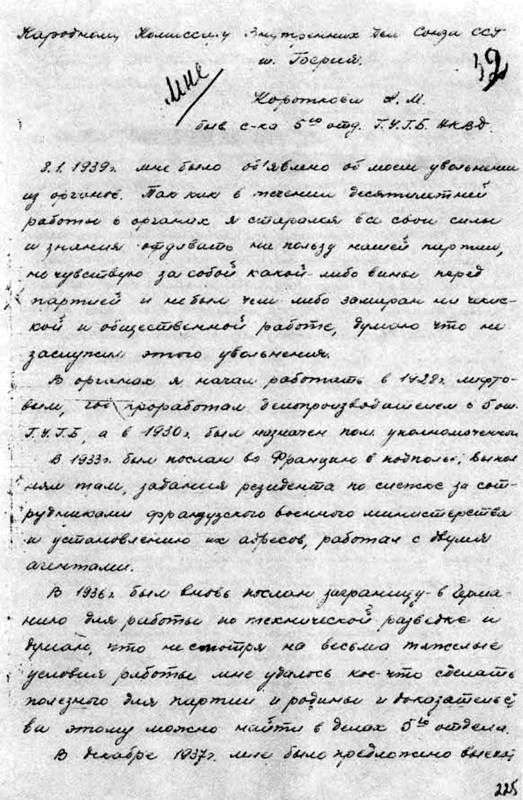 Народному Комиссару Внутренних Дел Союза ССР
т. Берия.
Короткова А. М.
быв с-ка 5го отд. Г.У.Г.Б. НКВД.
8.I.1939г. мне было об'явлено об моем увольнении
из органов. Так как в течении десятилетней
работы в органах я старался все свои силы
и знания отдавать на пользу нашей партии,
не чувствую за собой какой-либо вины перед
партией и не был чем либо замаран на чекис-
кой и общественной работе, думаю что не
заслужил этого увольнения.
В органах я начал работать в 1928г. лифто-
вым, проработал делопроизводителем в 5 от.
Г.У.Г.Б, а в 1930г. был назначен пом. уполномоченного
В 1933г. был послан во Францию в подполье, выпол-
нял там, задания резидента по слежке за сот-
рудниками французского военного министерства
и установлению их адресов, работал с двумя
агентами.
В 1936г. был вновь послан заграницу - в Герма-
нию для работы по технической разведке и
думаю, что несмотря на весьма тяжелые
условия работы мне удалось кое-что сделать
полезного для партии и родины и доказательст-
ва этому можно найти в делах 5го отдела.
В декабре 1937г. мне было предложено выехать
225